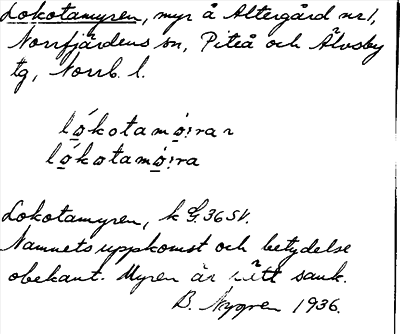 Lokotamyren, myr å Altergård nr 1,
Norrfjärdens sn, Piteå och Älvsby
tg, Norrb. l.
ló̲kotamȯ̲:ran
ló̲kotamȯ̲:ra
Lokotamyren, k G. 36 SV.
Namnets uppkomst och betydelse
obekant. Myren är rätt sank.
B. Nygren 1936.